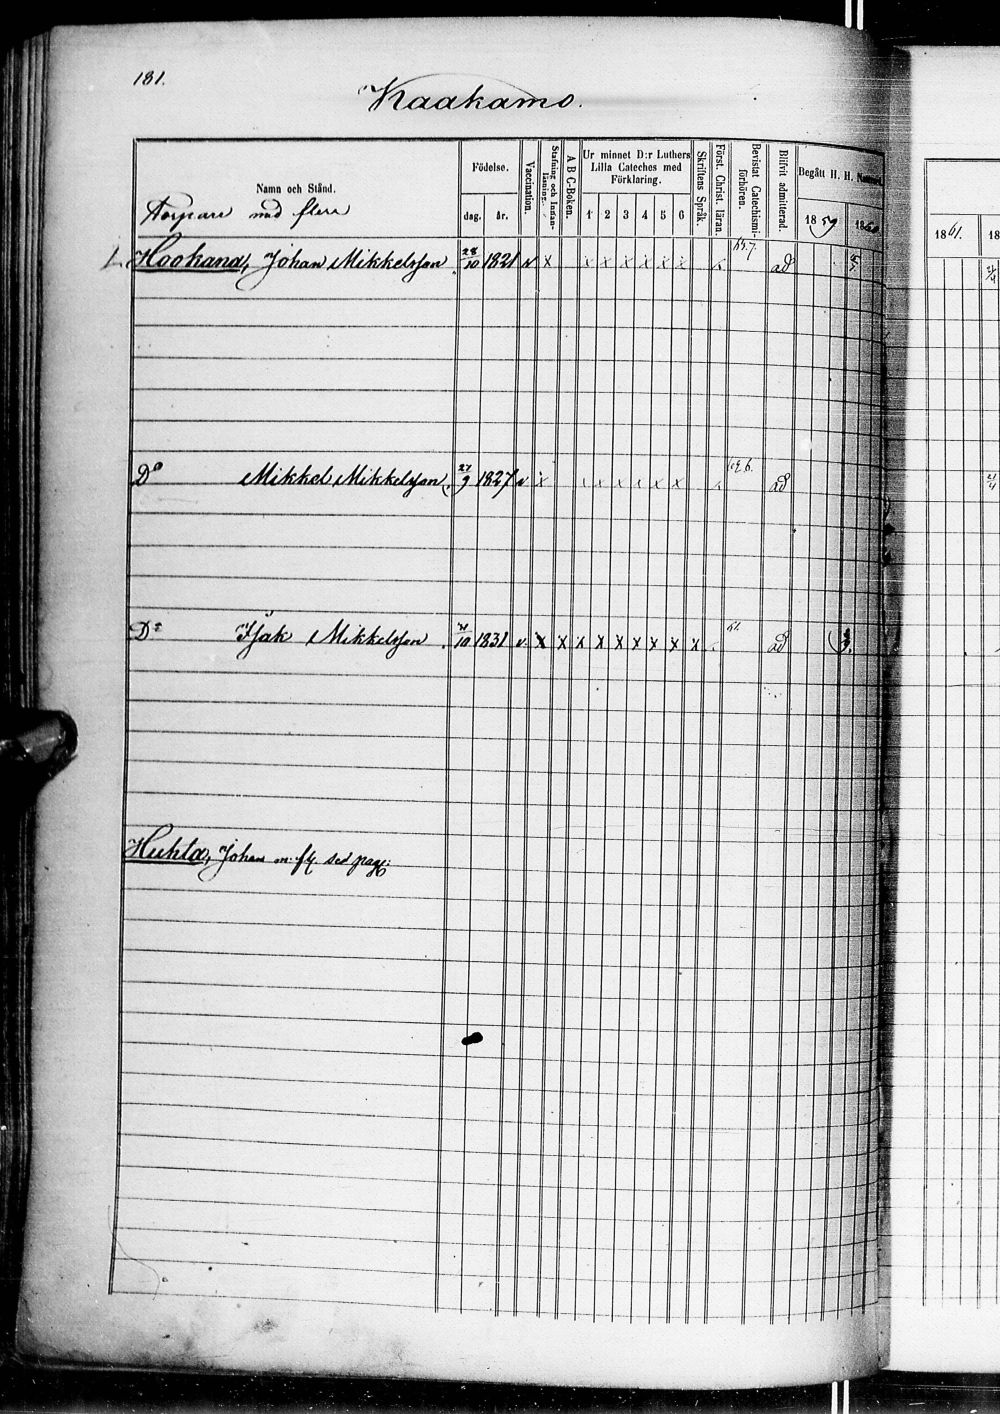 181.
Kaakamo.
Namn och Stånd. Födelse. dag. år. Vaccination. Stafning och Innan-läsning. A B C-Boken. Ur minnet D:r Luthers Lilla Cateches med Förklaring. 1 2 3 4 5 6 Skriftens Språk. Först. Christ. läran. Bevistat Catechismi-förhören. Blifvit admitterad. Begått H. H. 1859 1860 1861. 18
Torpare med flera
Hookana, Johan Mikkelsson 28/10 1821 v x x x x x x x 65.7. ad
Do Mikkel Mikkelsson 27/9 1827 v x x x x x x x ad 21/4
Do Isak Mikkelsson 21/10 1831 v. x x x x x x x x x 61. ad
Huhta, Johan m. fl. sed pag: